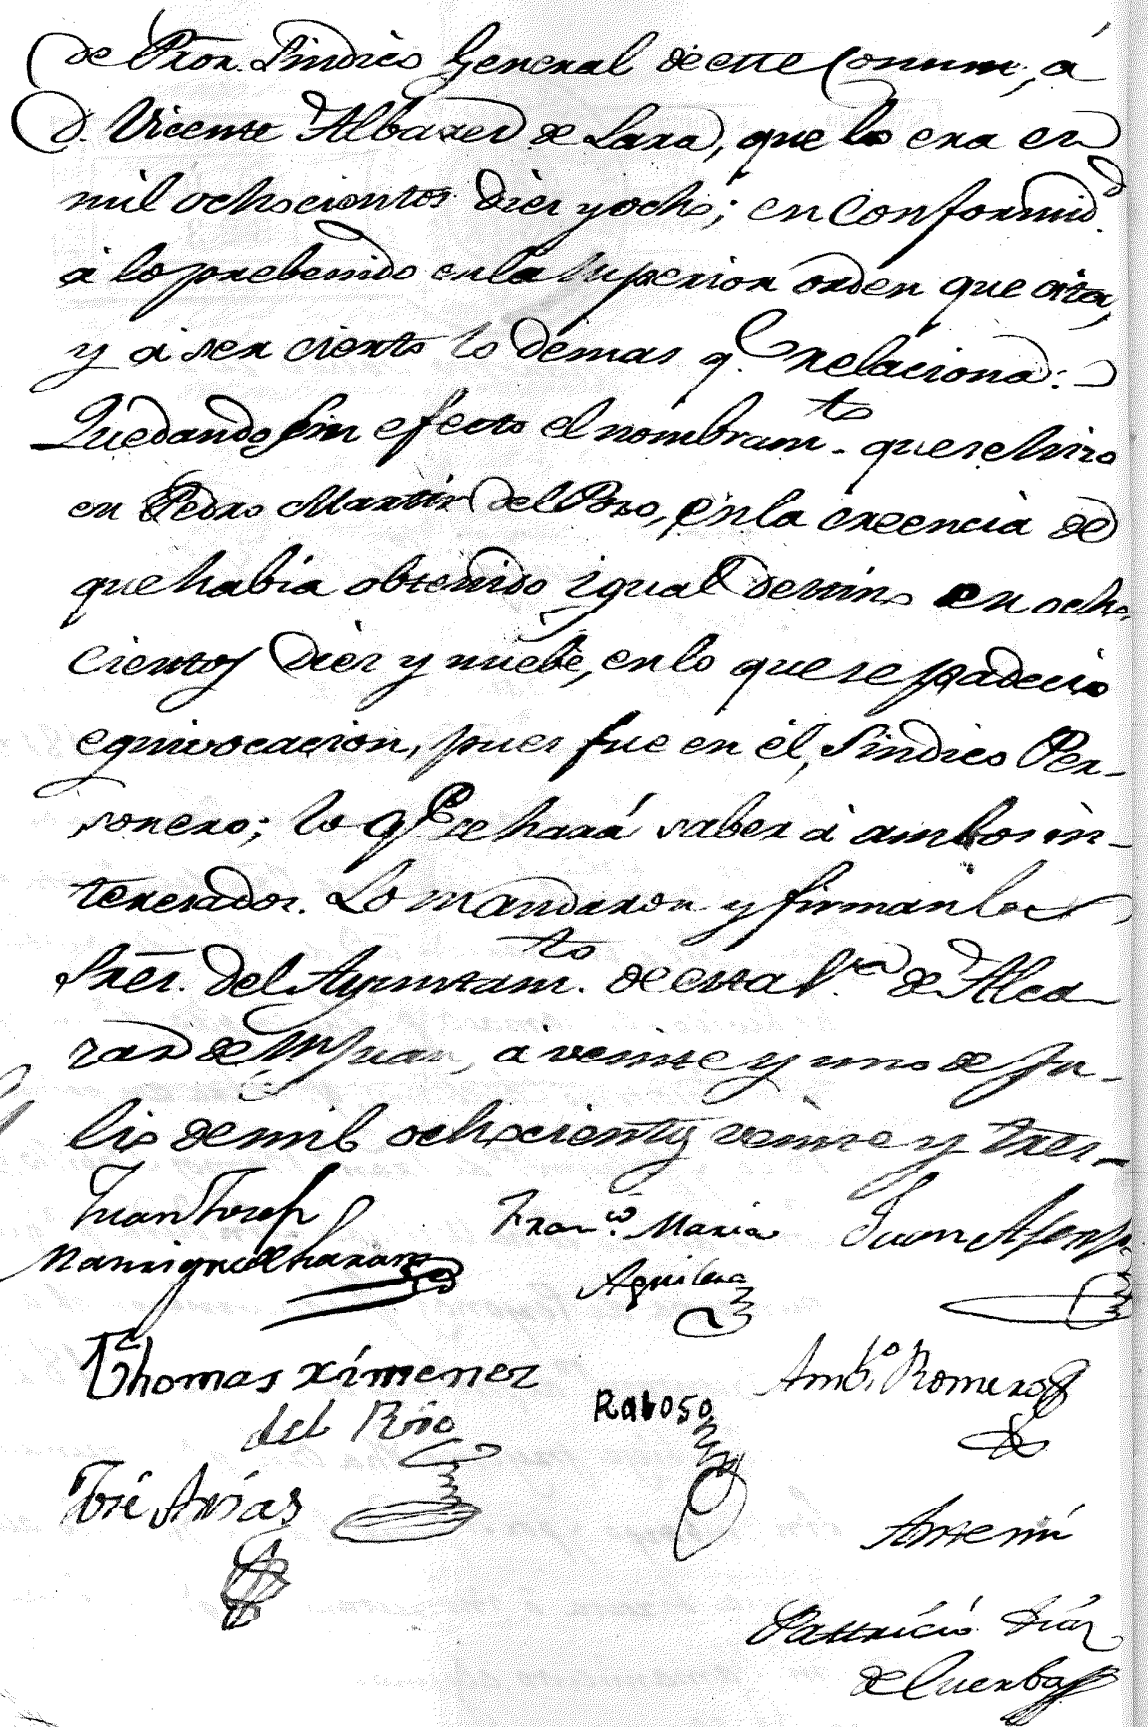 de Pror. Sindico General de este Comun, á
D. Vicente Albarez de Lara, que lo era en
mil ochocientos diez y ocho; en conformid.d
á lo prebenido en la superior orden que cita,
y á ser cierto lo demas q.e relaciona:
Quedando sin efecto el nombram.to que se hizo
en Pedro Martin del Pozo, en la creencia de
que habia obtenido igual destino en ocho
cientos diez y nuebe, en lo que se padecio
equivocacion, pues fue en él, Sindico Per-
sonero; lo q.e se hará saber á ambos in-
teresados. Lo mandaron y firman los
Sres. del Ayuntam.to de esta V.a de Alca
zar de Sn Juan, á veinte y uno de Ju-
lio de mil ochocientos veinte y tres.
Juan Josef
Franco. Maria
Juan
Manrique de Lara
Aguilera
Thomas Ximenez
del Rio
Raboso
Ambo. Romero
José Arias
Antemi
Pattricio Diaz
de Cuerba